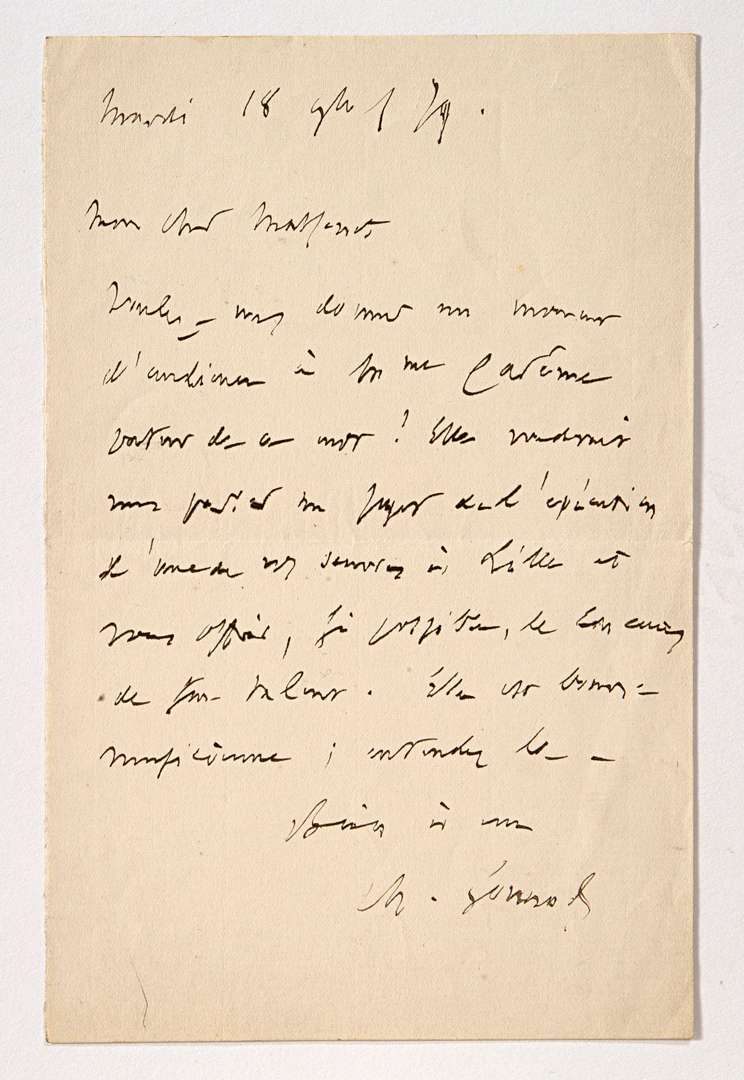 Mardi 18 9bre / 79.
Mon cher Massenet,
Voulez-vous donner un moment
d'audience à Mme Cadême
porteur de ce mot ! Elle voudrait
vous parler au sujet de l'exécution
d'une de vos oeuvres à Lille et
vous offrir, si possible, le concours
de son talent. Elle est bonne
musicienne ; entendez la -
Bien à vous
Ch. Gounod